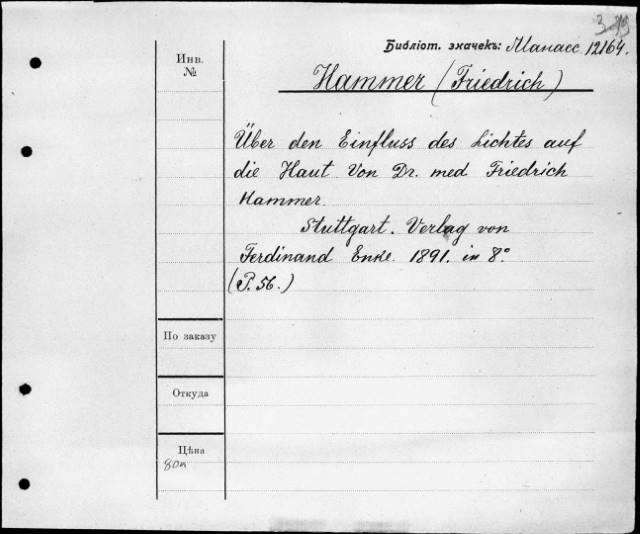 Библіот. значекъ: Манасс. 12164.
Инв.
№
Hammer (Friedrich)
Über den Einfluss des Lichtes auf
die Haut Von Dr. med Friedrich
Hammer.
Stuttgart. Verlag von
Ferdinand Enke. 1891. in 8°
(P. 56.)
По заказу
Откуда
Цѣна
80к